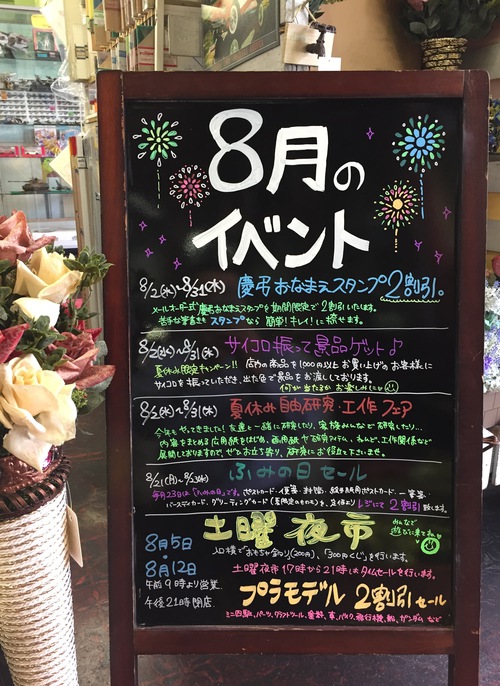 8月の
イベント
8/2(水)~8/31(木) 慶弔おなまえスタンプ2割引。
メールオーダー式慶弔おなまえスタンプを期間限定で2割引いたします。
苦手な筆書きもスタンプなら簡単!キレイ!に捺せます。
8/2(水)~8/31(木) サイコロ振って景品ゲット♪
夏休み限定キャンペーン!! 店内の商品を1,000円以上お買い上げのお客様に
サイコロを振っていただき、出た色で景品をお渡ししております。
何が当たるかお楽しみに
8/2(水)~8/31(木) 夏休み自由研究・工作フェア
今年もやってきました!友達と一緒に研究したり、家族みんなで研究したり…
内容をまとめる広用紙をはじめ、画用紙や研究アイテム、ねんど、工作関係など
展開しておりますので、ぜひお立ち寄り、研究にお役立て下さいませ。
8/21(月)~8/23(水) ふみの日 セール
毎月23日は「ふみの日」です。ポストカード・便箋・封筒・絵手紙用ポストカード、一筆箋・
バースデイカード、グリーティングカード
レジにて2割引致します。
土曜夜市
みんなで
遊びに来てね
8月5日
8月12日
午前9時より営業
午後21時閉店
入口横でおもちゃ釣り(200円)、「300円くじ」を行います。
土曜夜市17時から21時はタイムセールを行います。
プラモデル 2割引セール
ミニ四駆、パーツ、クラフトツール、塗料、車、バイク、飛行機、船、ガンダムなど